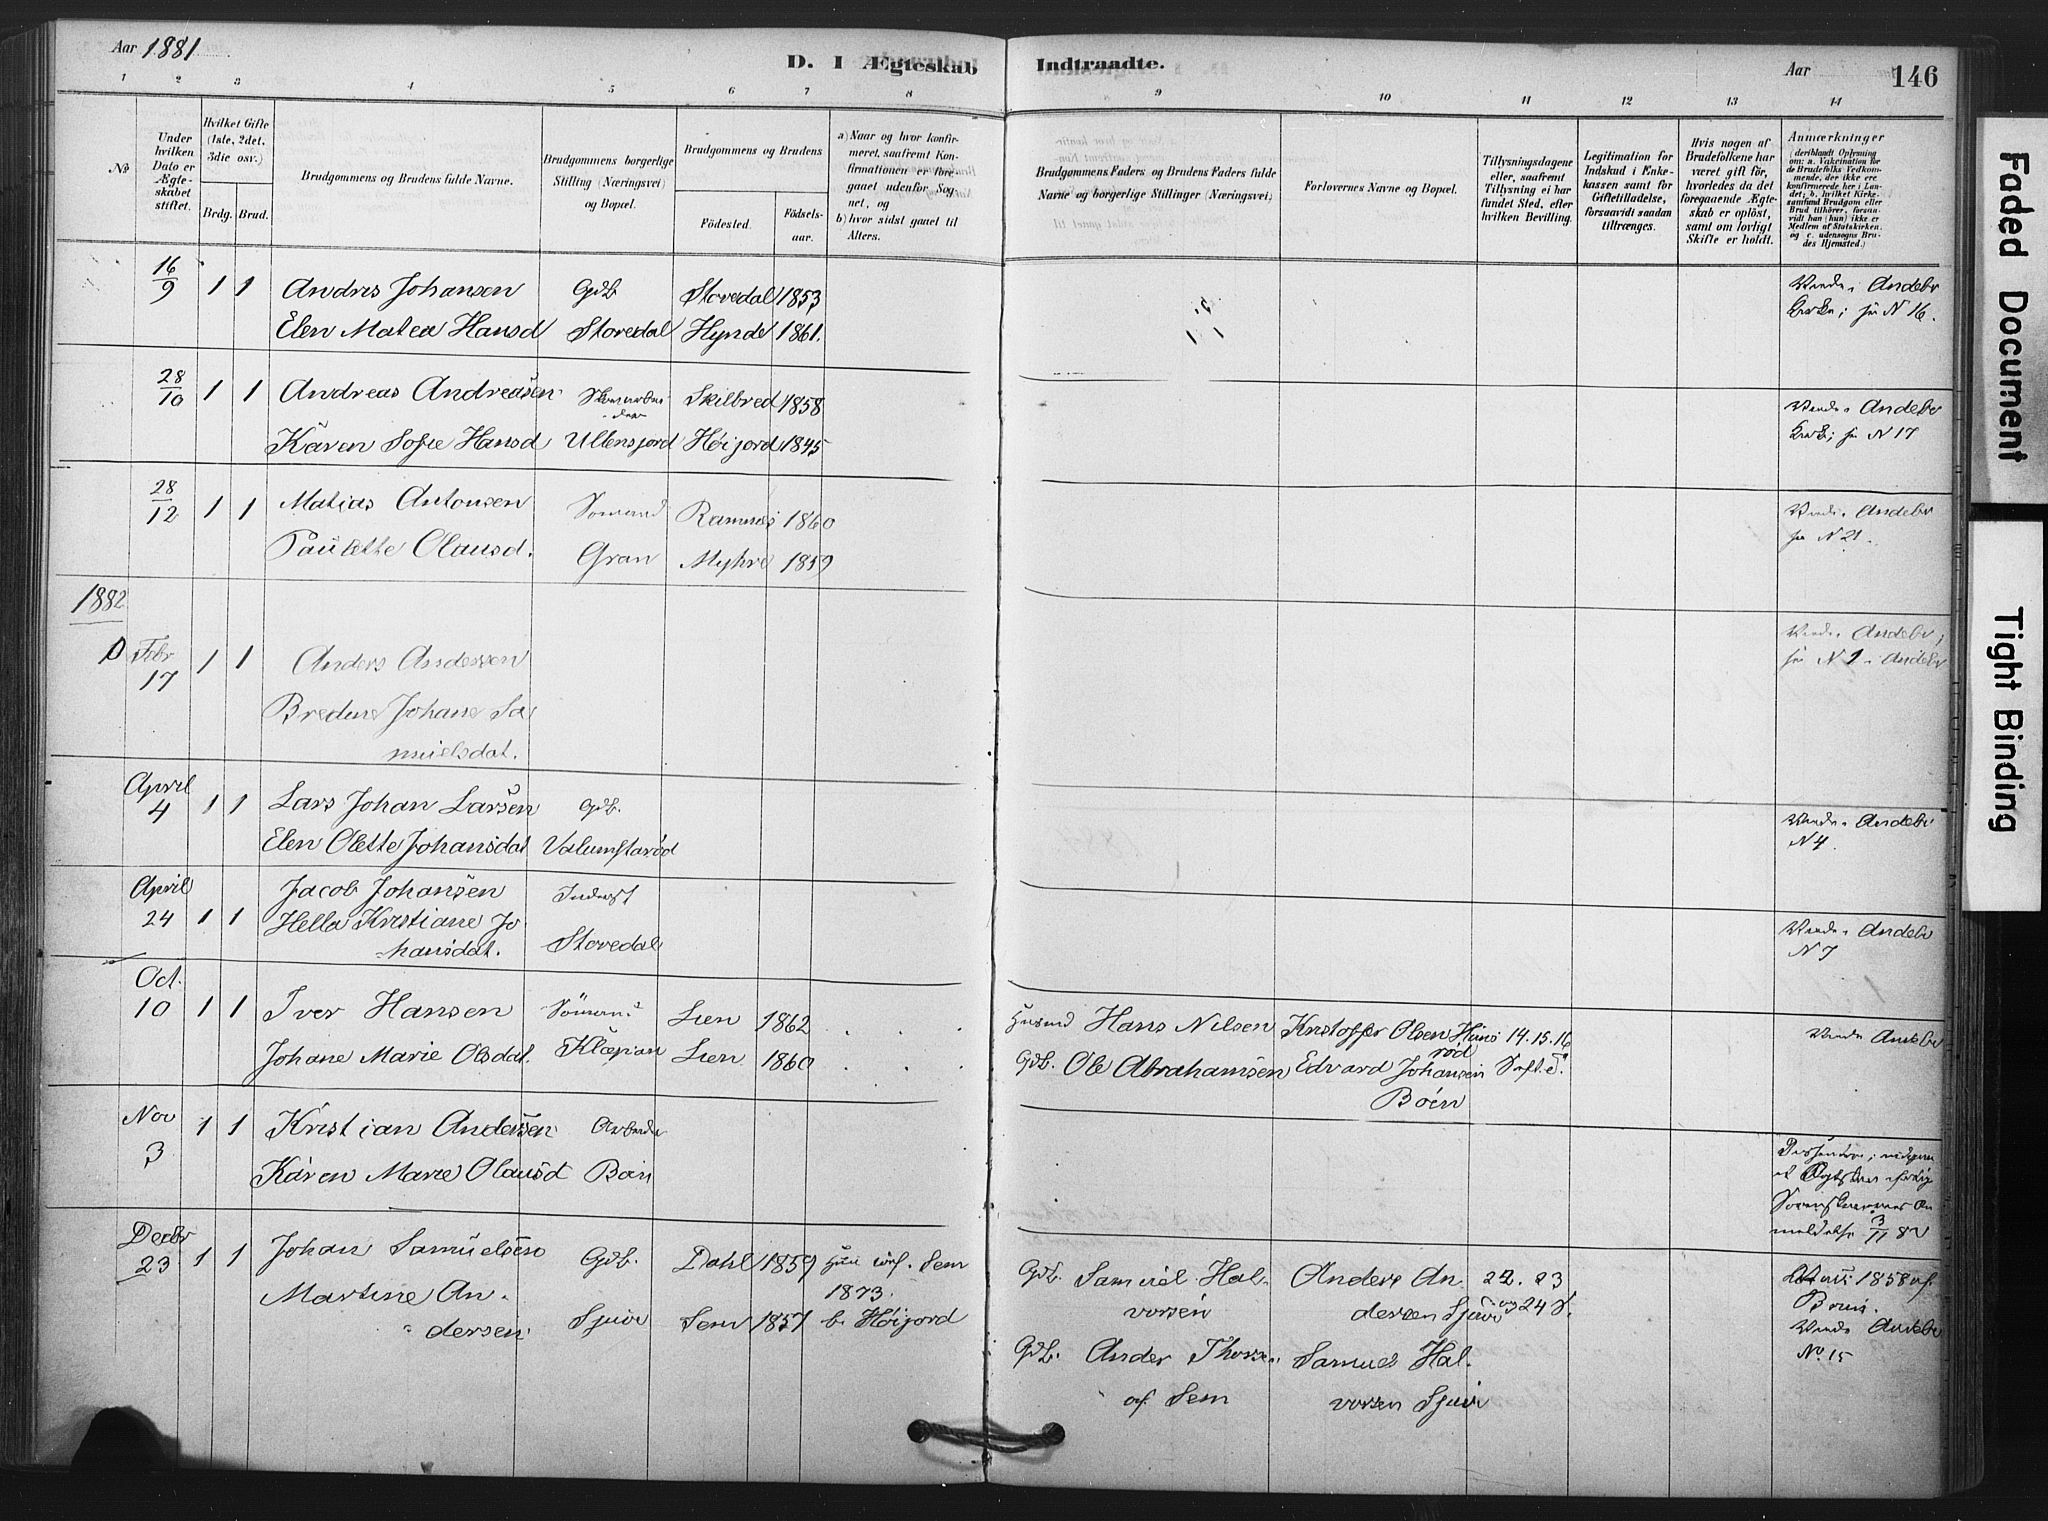 Aar 1881
D. I Ægteskab Indtraadte.
Aar
146
1 2 3 4 5 6 7 8 9 10 11 12 13 14
No
Under hvilken Dato er Ægteskabet stiftet.
Hvilket Gifte (1ste, 2det, 3die osv.)
Brdg. Brud.
Brudgommens og Brudens fulde Navne.
Brudgommens borgerlige Stilling (Næringsvei) og Bopæl.
Brudgommens og Brudens
Födested. Födselsaar.
a) Naar og hvor konfirmeret, saafremt Konfirmationen er foregaaet udenfor Sognet, og
b) hvor sidst gaaet til Alters.
Brudgommens Faders og Brudens Faders fulde Navne og borgerlige Stillinger (Næringsvei)
Forlovernes Navne og Bopæl.
Tillysningsdagene eller, saafremt Tillysning ei har fundet Sted, efter hvilken Bevilling.
Legitimation for Indskud i Enkekassen samt for Giftetilladelse, forsaavidt saadan tiltrænges.
Hvis nogen af Brudefolkene har været gift før, hvorledes da det foregaaende Ægteskab er oplöst, samt om lovligt Skifte er holdt.
Anmærkninger
(deriblandt Oplysning om: a. Vakcination for de Brudefolks Vedkommende, der ikke ere konfirmerede her i Landet; b. hvilket Kirkesamfund Brudgom eller Brud tilhörer, forsaavidt han (hun) ikke er Medlem af Statskirken. og c. udensogns Brudes Hjemsted.)
16/9 1 1 Andres Johansen Gdb. Stovedal 1853
Elen Matea Hansd Stovedal Hynde 1861.
Andebu
N 16.
28/10 1 1 Andreas Andreasen Skilbred 1858
Karen Sofie Hansd Høijord 1845
Andebu
N 17
28/12 1 1 Matias Antonsen Ramnæs 1860
Paulette Olausd. Gran Myhre 1859
Andebu
N 21.
1882
Febr 17 1 1 Anders Andersen
Johane Samuelsdat.
Andebu
N 1 i Andebu
April 4 1 1 Lars Johan Larsen Gdb.
Elen Olette Johansdat
Andebu
N 4.
April 24 1 1 Jacob Johansen Inderst
Hella Kristiane Johansdat. Stovedal
Andebu
N 7
Oct. 10 1 1 Iver Hansen Lien 1862
Hans Nilsen Kristoffer Olsen 14. 15. 16
Johane Marie Olsdat. Lien 1860
Gdb. Ole Abrahamsen Edvard Johansen
Böen
Andebu
Nov 3 1 1 Kristian Andersen
Karen Marie Olausd
3/11 82
Decbr 23 1 1 Johan Samuelsen Gdb. Dahl 1859 Sem
1873.
Martine Andersen Sem 1857 b. Høijord
Gdb. Samuel Halvorsen Anders Andersen 22. 23
og 24 S.
Gdb. Anders
af Sem
Samuel Halvorsen
1858 af
Andebu
No. 15
Faded Document
Tight Binding